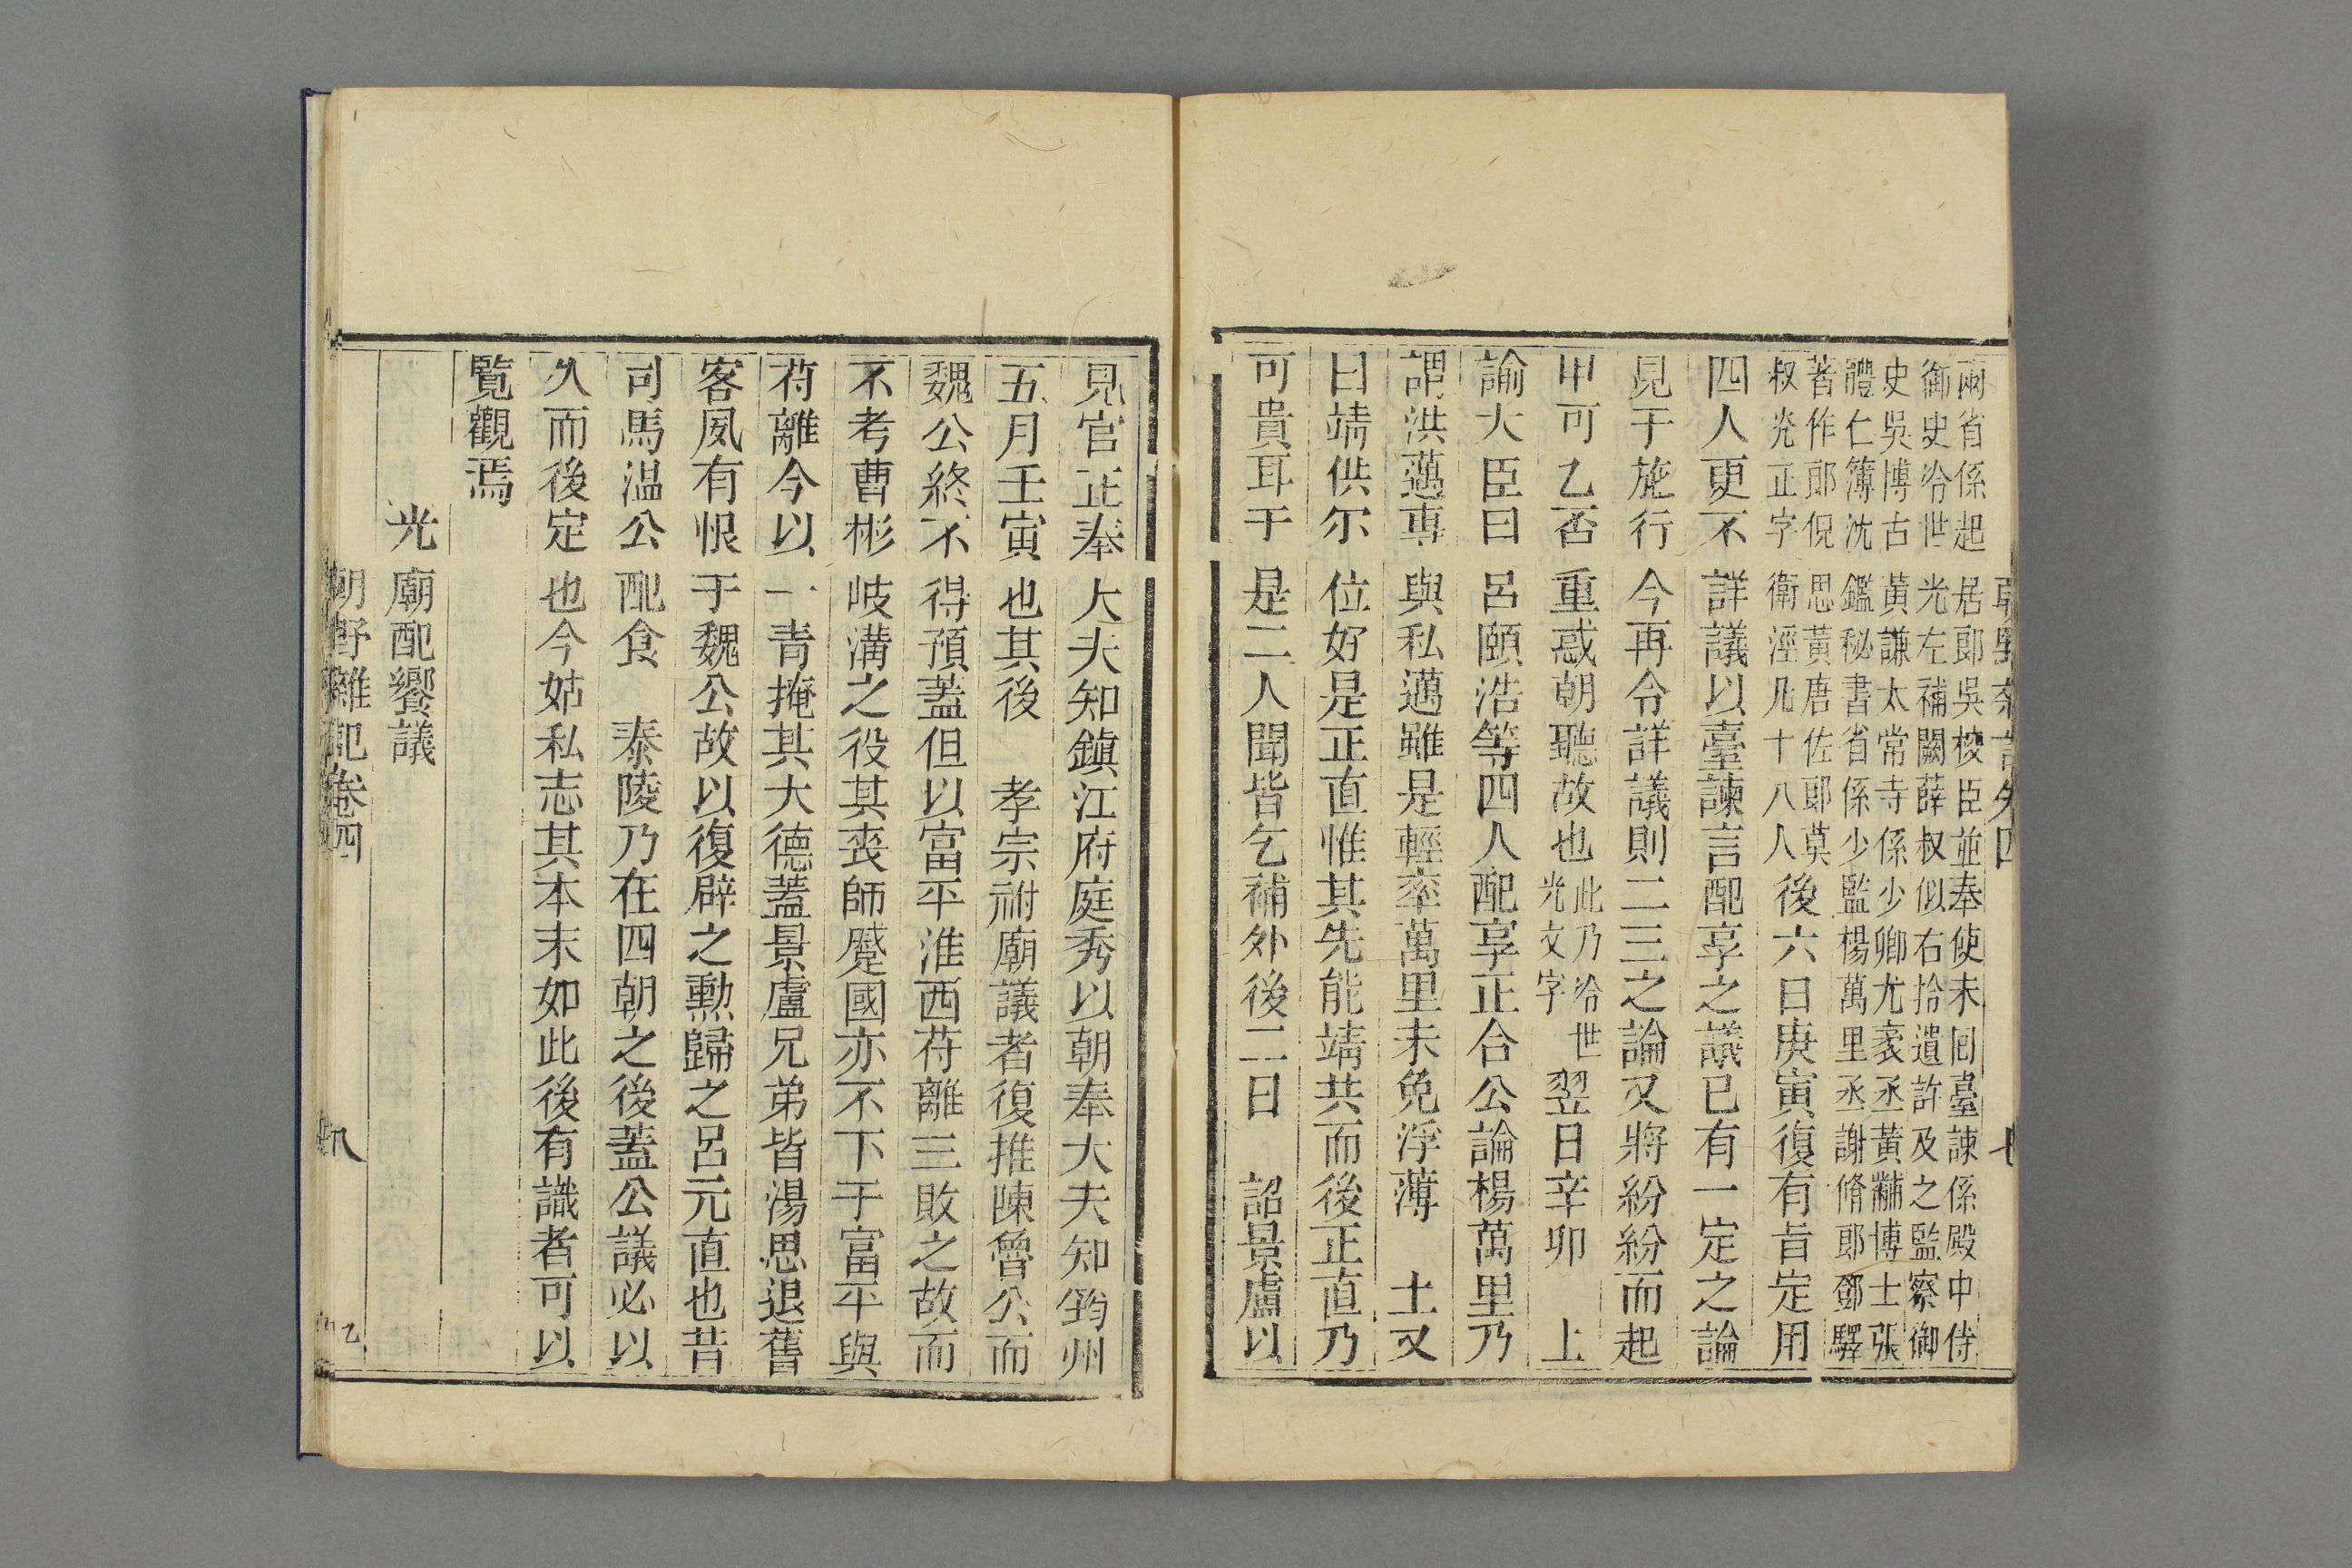 兩省係起居郎吳梭臣並奉使未回臺諫係殿中侍
御史冷世光左補闕薛叔似右拾遺許及之監察御
史吳博古黃謙太常寺係少卿尤袤丞黃黼博士張
體仁簿沈鑑秘書省係少監楊萬里丞謝脩郎鄧驛
著作郎倪思黃唐佐郎莫
叔光正字衛涇凡十八人後六日庚寅復有旨定用
四人更不詳議以臺諫言配享之議已有一定之論
見于施行今再令詳議則二三之論又將紛紛而起
甲可乙否重惑朝聽故也此乃冷世光文字翌日辛卯 上
諭大臣曰呂頤浩等四人配享正合公論楊萬里乃
謂洪邁專與私邁雖是輕率萬里未免浮薄 上又
曰靖供尔位好是正直惟其先能靖共而後正直乃
可貴耳于是二人聞皆乞補外後二日 詔景盧以
見官正奉大夫知鎮江府庭秀以朝奉大夫知筠州
五月壬寅也其後 孝宗祔廟議者復推陳魯公而
魏公終不得預蓋但以富平淮西苻離三敗之故而
不考曹彬岐溝之役其喪師蹙國亦不下于富平與
苻離今以一眚掩其大德蓋景盧兄弟皆湯思退舊
客夙有恨于魏公故以復辟之勳歸之呂元直也昔
司馬温公配食 泰陵乃在四朝之後蓋公議必以
久而後定也今姑私志其本末如此後有識者可以
覧觀焉
光廟配饗議
朝野雜記卷四
八
乙